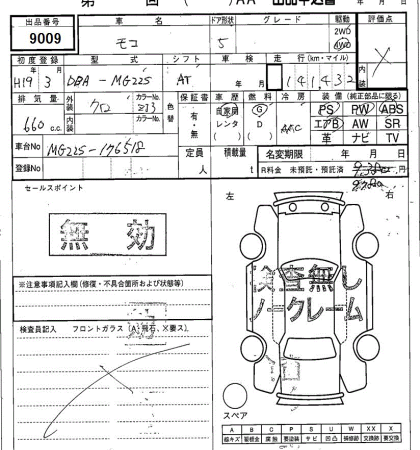 第 回 ( )AA 出品申込書 年 月 日
出品番号 車名 ドア形状 グレード 駆動 評価点
9009 モコ 5 2WD 4WD
初度登録 型式 シフト 車検 走行(km・マイル) 内装
H19年3月 DBA-MG22S AT 年 月 141,432
排気量 外装 クロ カラーNo. ZJ3 色替 保証書 車歴 燃料 冷房 装備(純正部品に限る)
660 c.c. 内装 カラーNo. 有・無 自家用 レンタ D ( ) G D ( ) AAC PS PW ABS
エアB AW SR
革 ナビ TV
車台No MG22S-176518 定員 人 積載量 t 名変期限 年 月 日
登録No R料金 未預託・預託済 円
セールスポイント 左 右
無効
検査無し
ノークレーム
※注意事項記入欄(修復・不具合箇所および状態等)
検査員記入 フロントガラス(A:飛石、X要ス)
スペア
A B C P S U W XX X
線キズ 要板金 腐蝕 要塗装 サビ 凹凸 補修跡 交換済 要交換